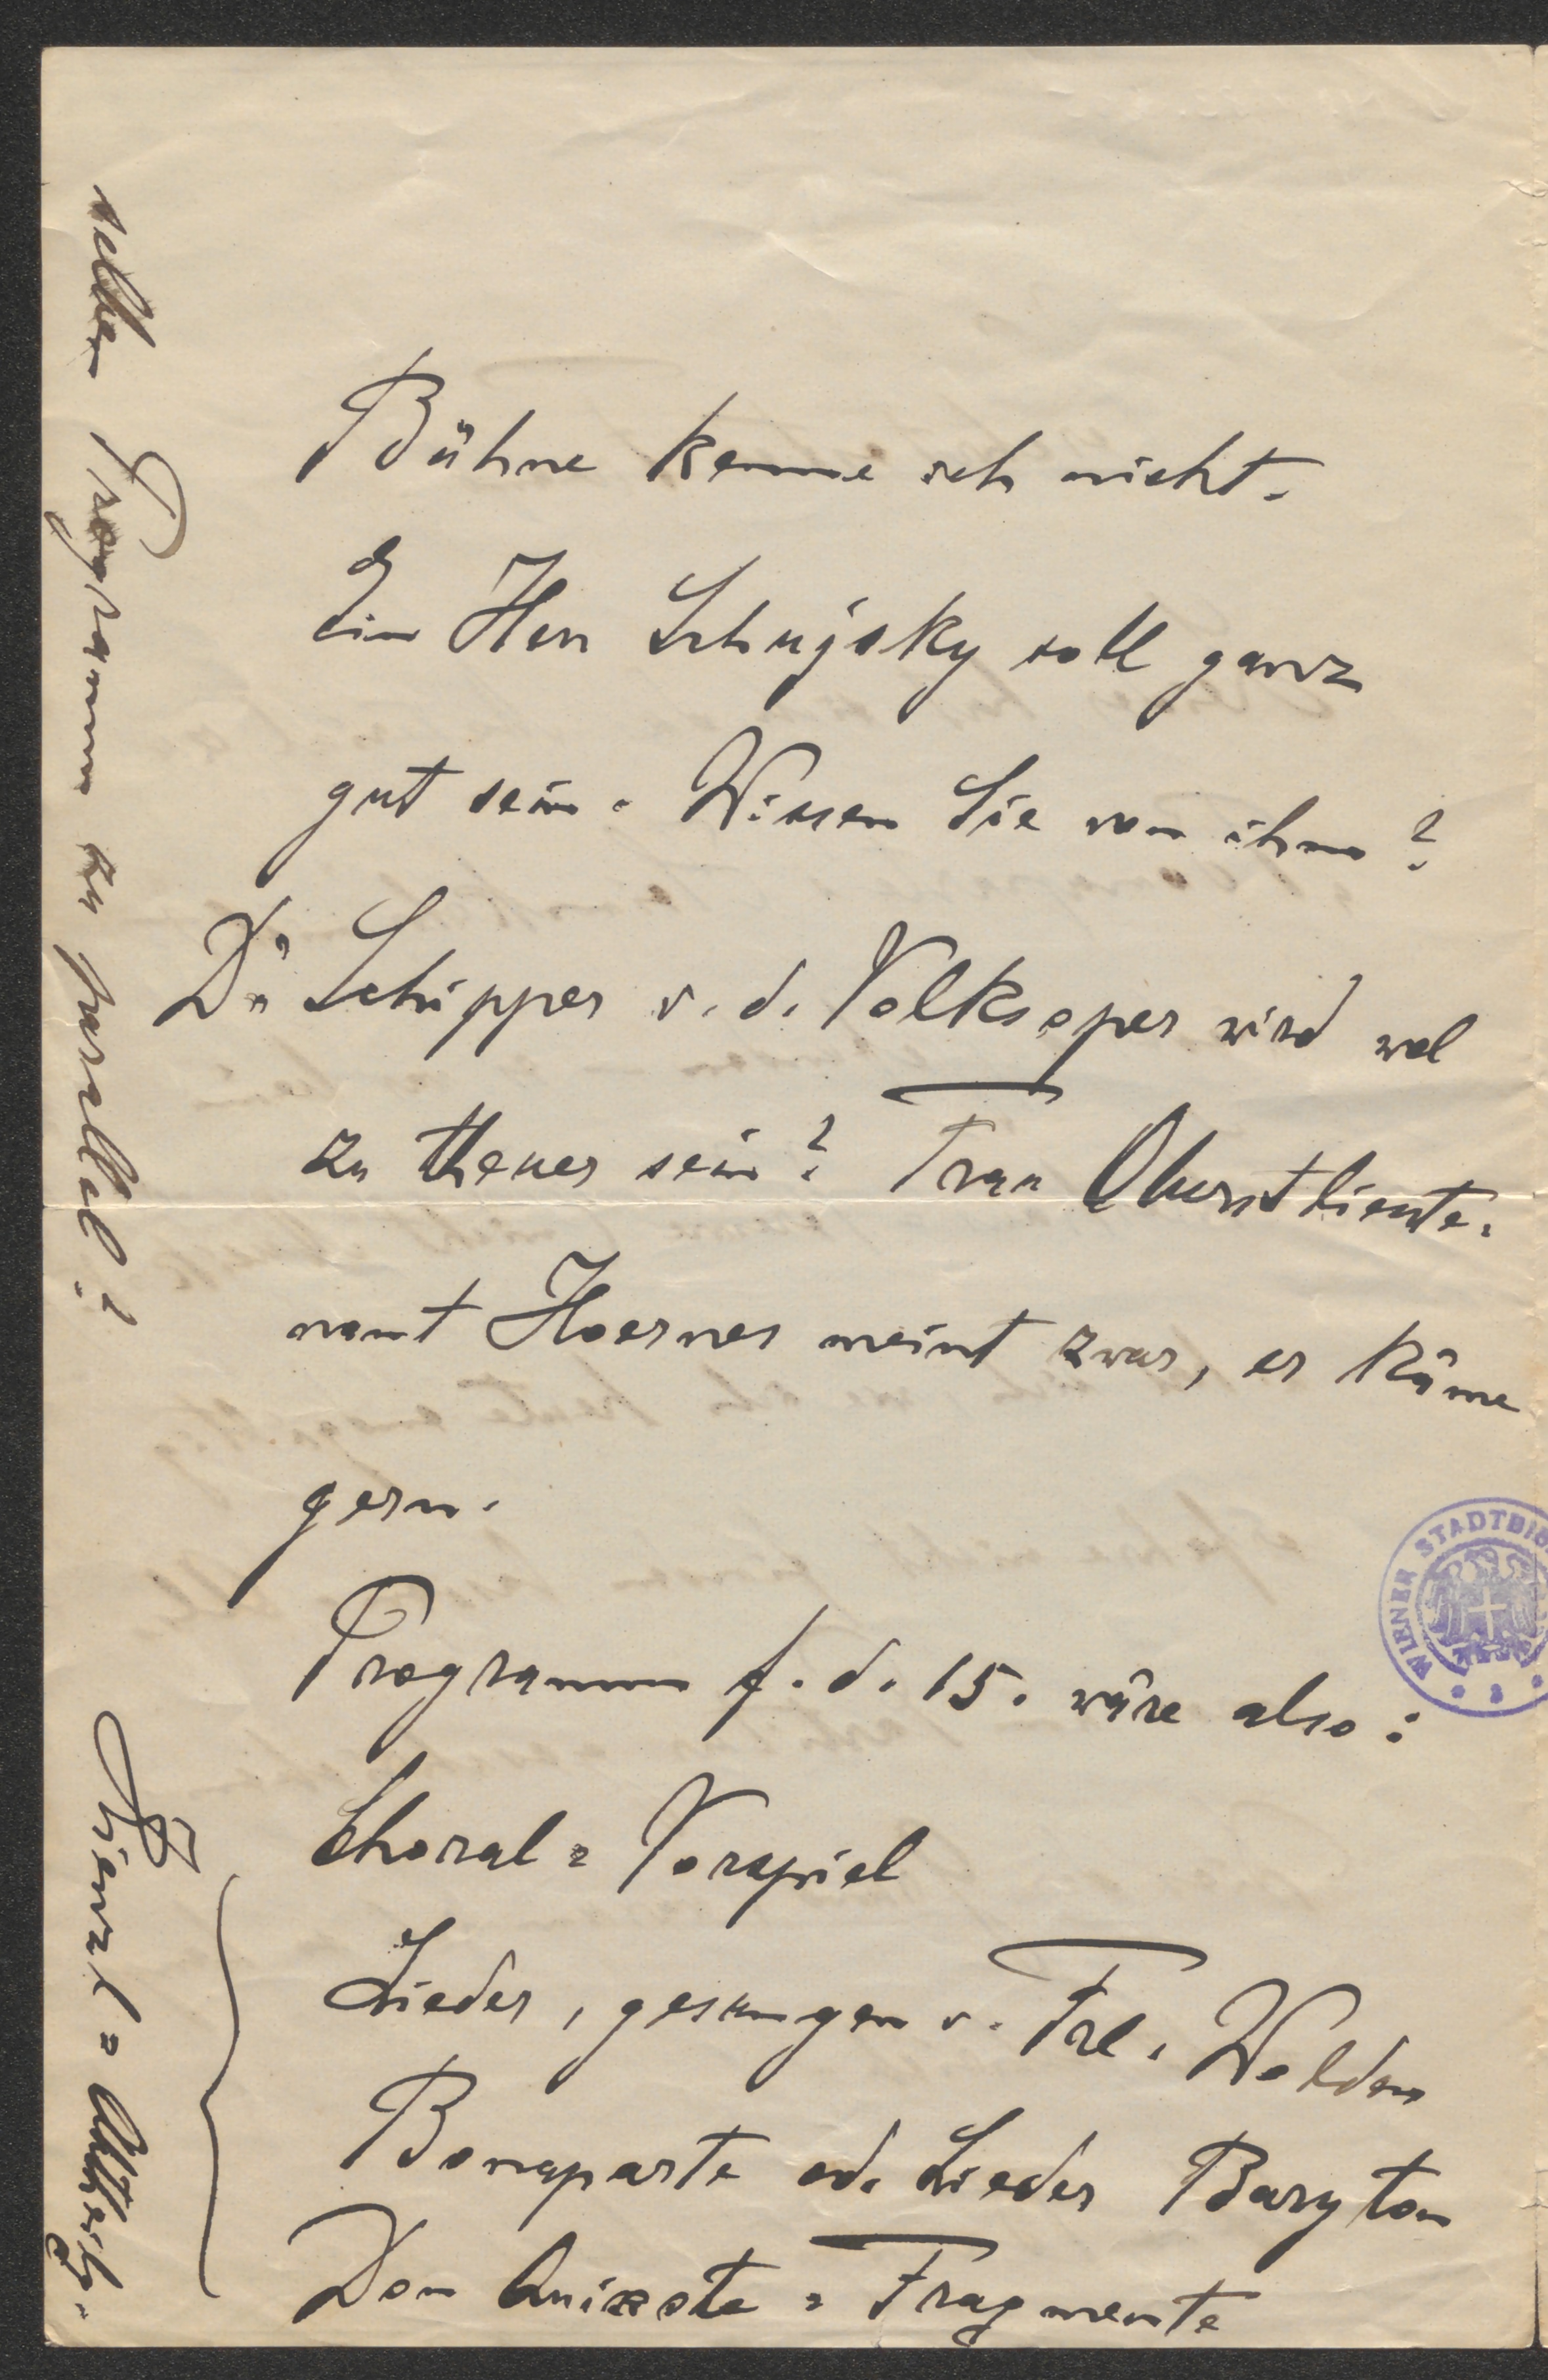 Bühne kenne ich nicht.
Ein Herr Schujsky soll ganz
gut sein. Wissen Sie von ihm?
Dr. Schipper v. d. Volksoper wird wol
zu theuer sein? Frau Oberstlieute-
nant Hoernes meint zwar, er käme
gern.
Programm f. d. 15. wäre also:
Choral = Vorspiel
Lieder, gesungen v. Frl. Wolden
Bonaparte od. Lieder Baryton
Don Quixote = Fragmente
Kienzl =
selben Programm zu parallel?
WIENER STADTBI